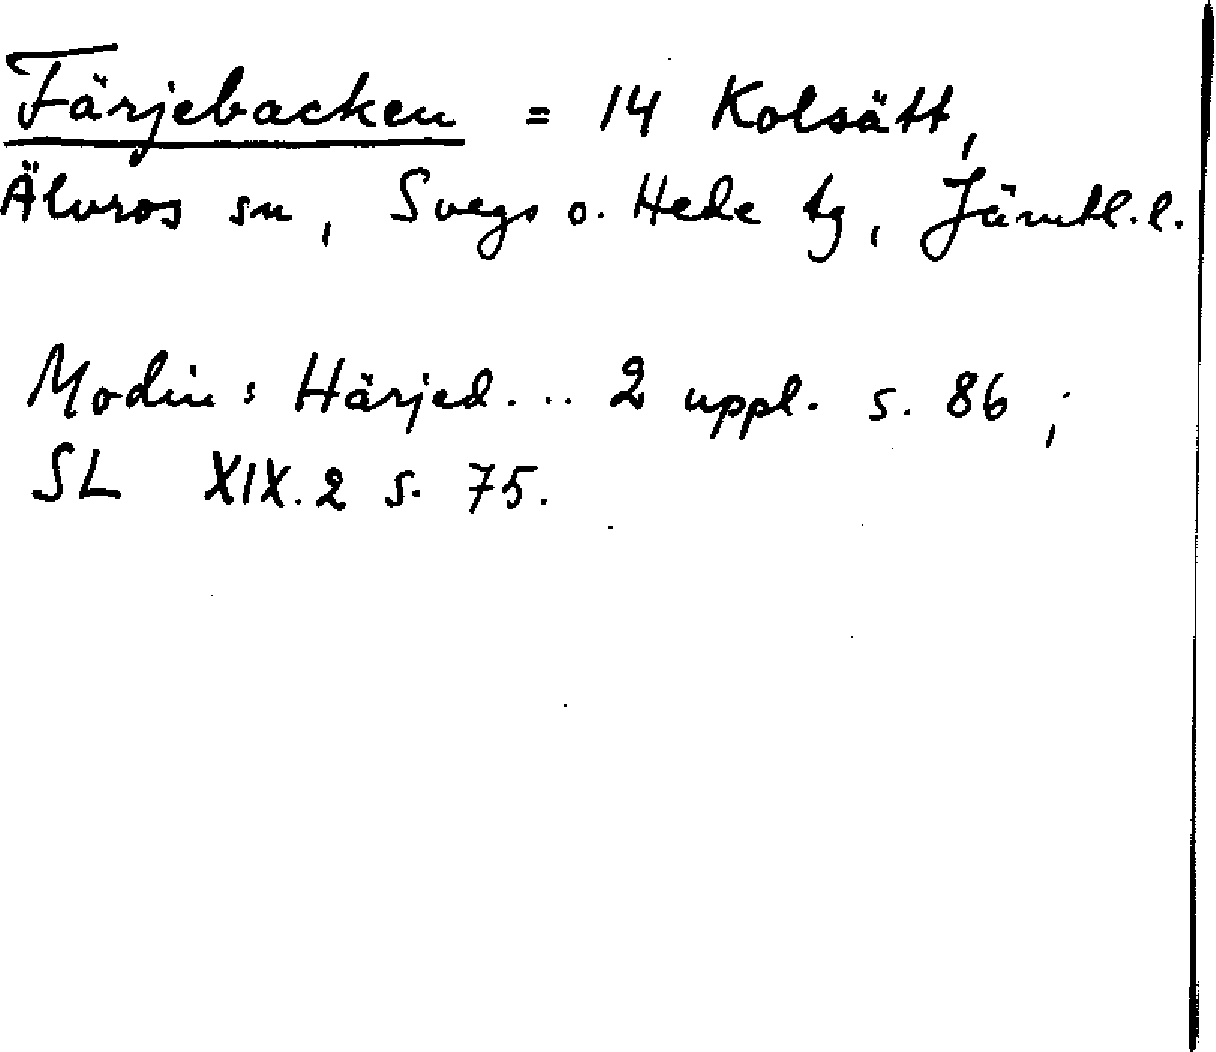 Färjebacken = 14 Kolsätt,
Älvros sn, Svegs o. Hede tg, Jämtl. l.
Modin: Härjed... 2 uppl. s. 86 ;
SL XIX.2 s. 75.